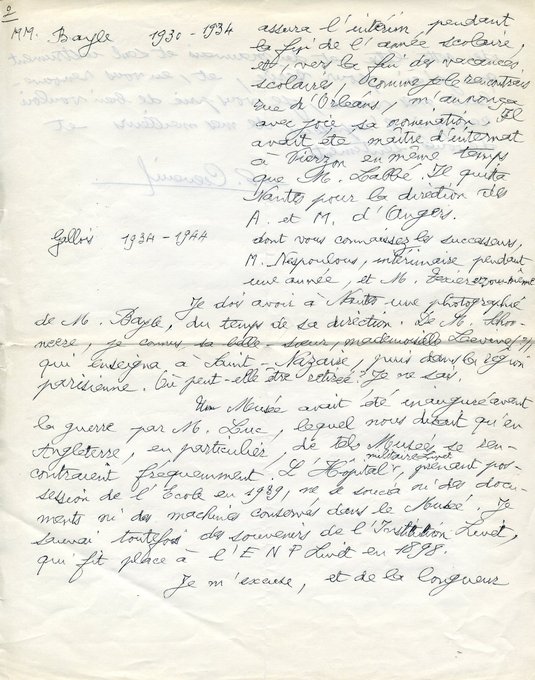 MM. Bayle 1930 - 1934 assura l'intérim pendant
la fin de l'année scolaire,
et, vers la fin des vacances
scolaires, comme je le rencontrais
rue d'Orléans, m'annonça
avec joie sa nomination. Il
avait été maître d'internat
à Vierzon en même temps
que M. Labbé. Il quitta
Nantes pour la direction des
A. et M. d'Angers.
Gallois 1934 - 1944 dont vous connaissez les successeurs,
M. Nespoulous, intérimaire pendant
une année, et M.
Je dois avoir à Nantes une photographie
de M. Bayle, du temps de sa direction. De M.
je connus sa belle-sœur, mademoiselle
qui enseigna à Saint-Nazaire, puis dans la région
parisienne. Ou peut-elle être retirée? Je ne sais.
Un Musée avait été inauguré avant
la guerre par M. Luc, lequel nous disait qu'en
Angleterre, en particulier, de tels Musées se ren-
contraient fréquemment. L'Hôpital militaire Livet, prenant pos-
session de l'Ecole en 1939, ne se soucia ni des docu-
ments ni des machines conservés dans le Musée. Je
sauvai toutefois des souvenirs de l'Institution Livet,
qui fit place à l'E N P Livet en 1898.
Je m'excuse, et de la longueur